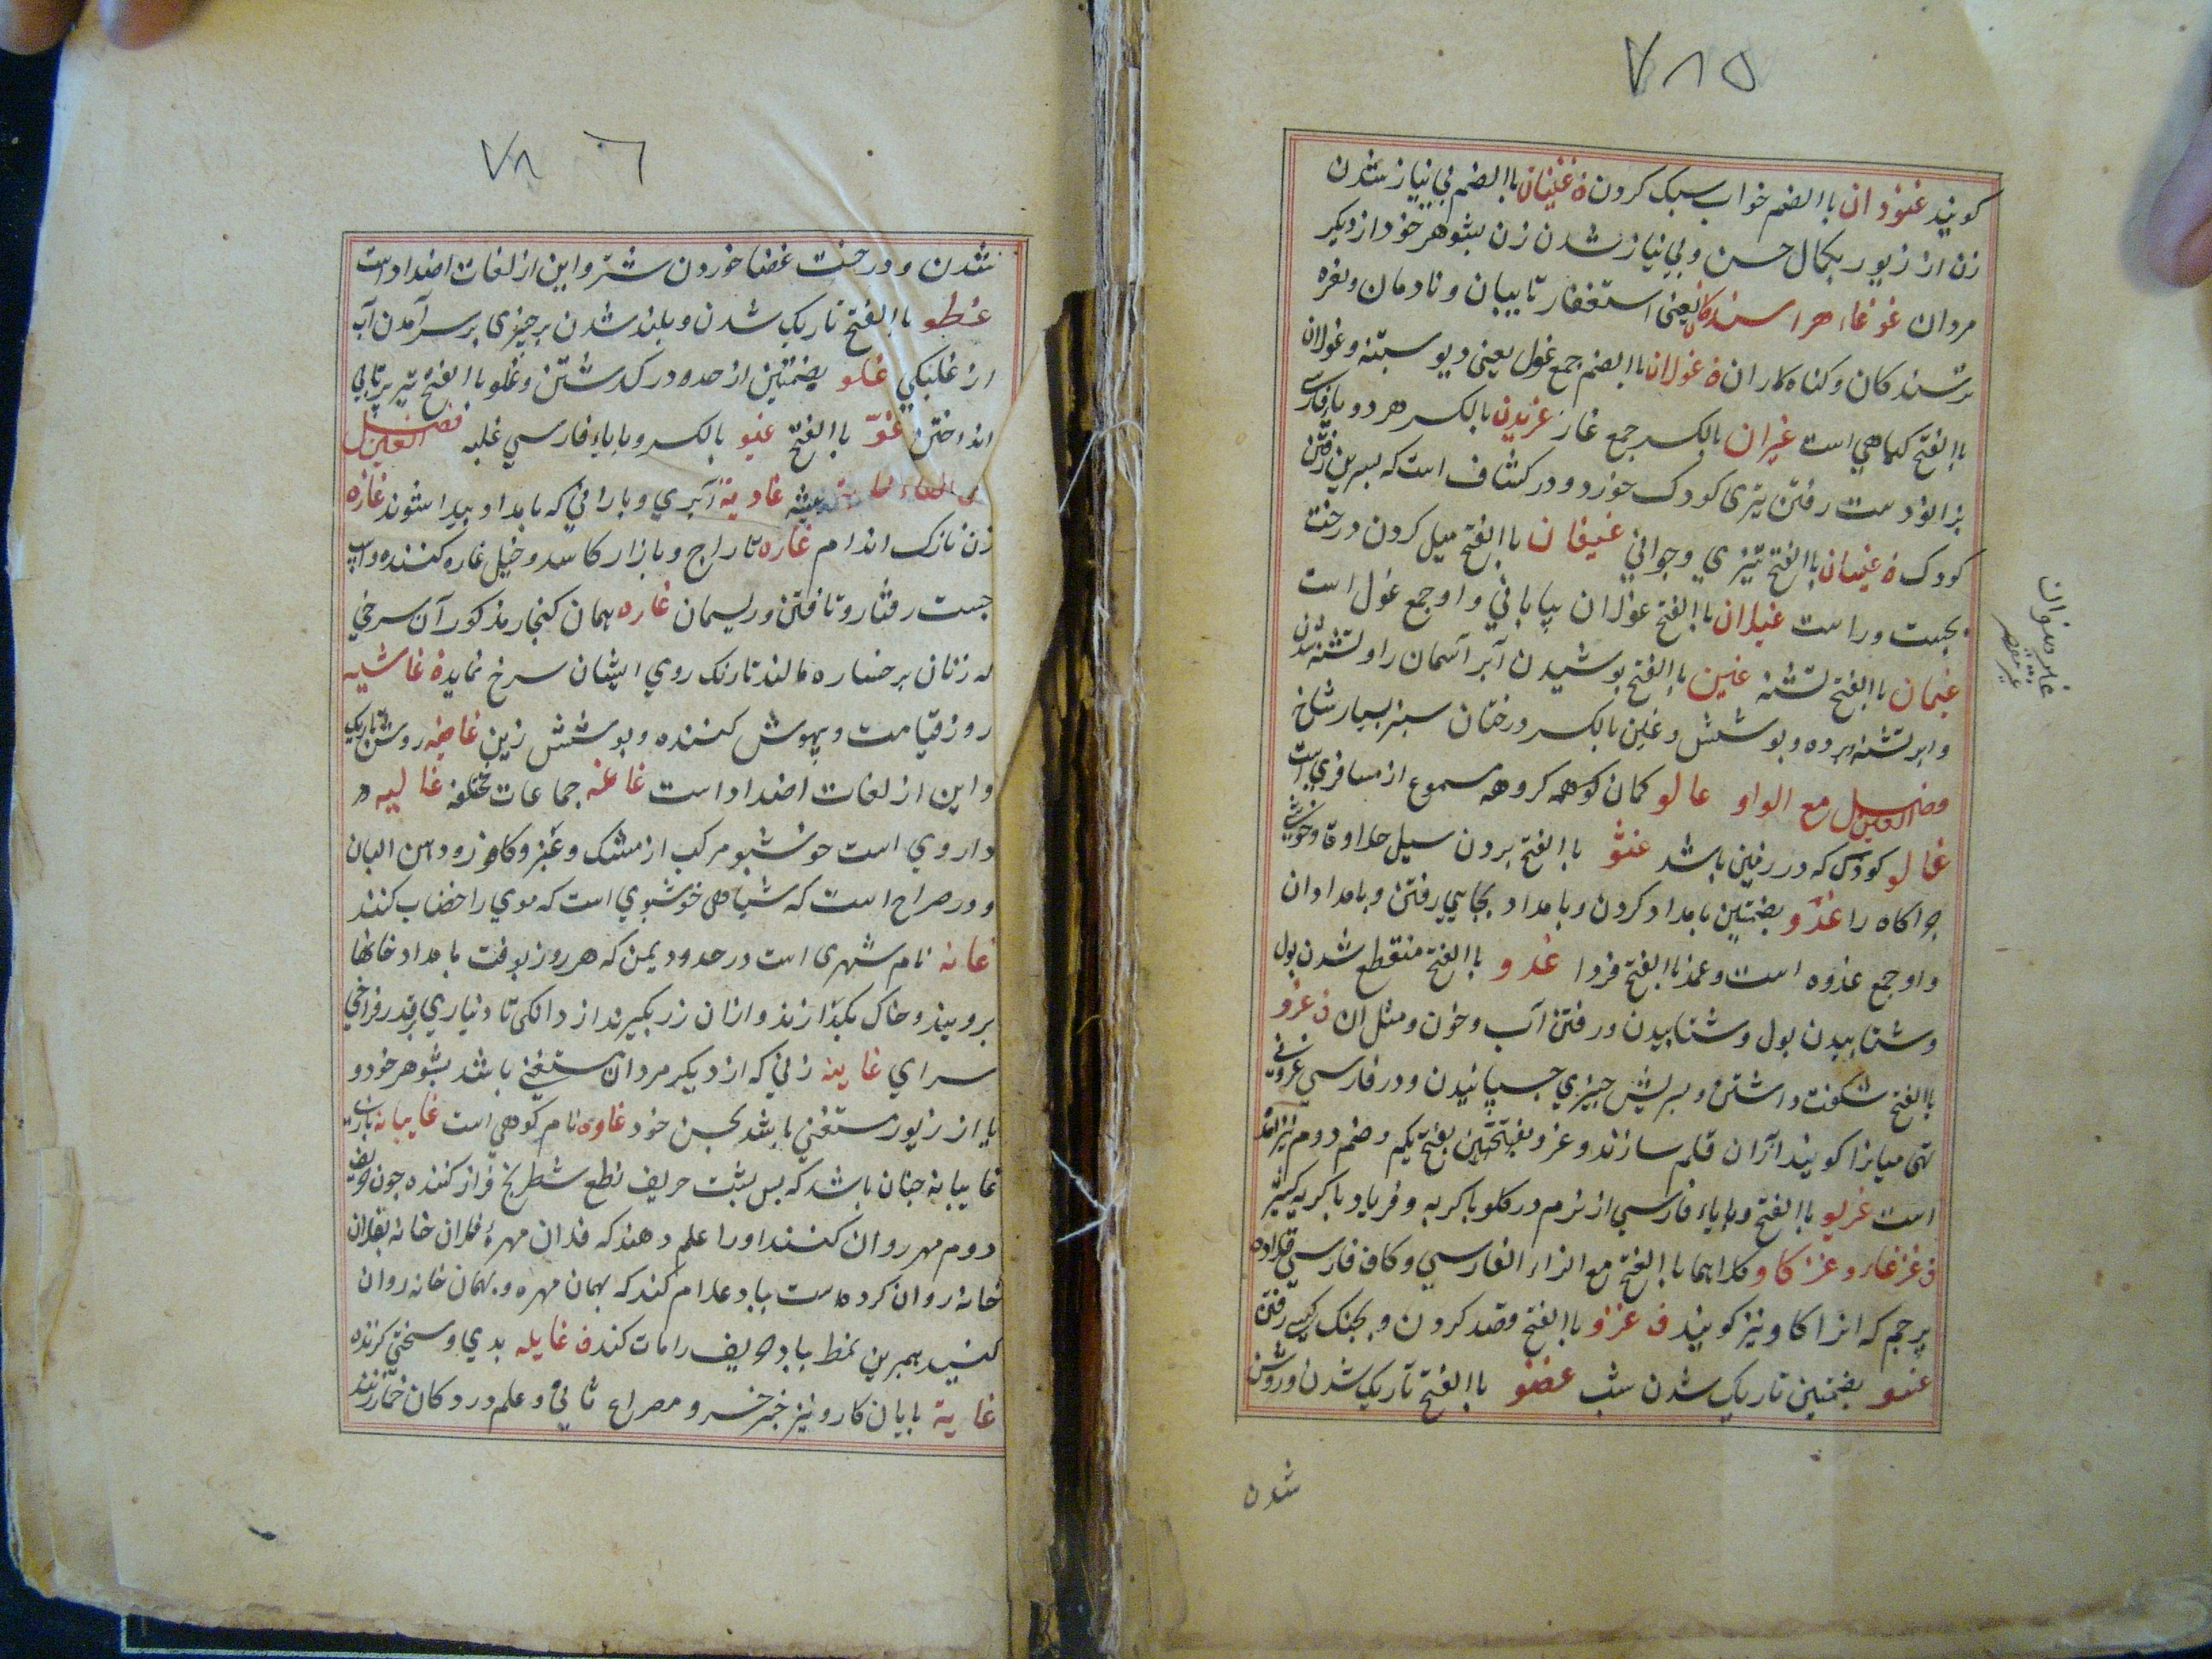 ٧٨٥
کویند غنودان باالضم خواب سبک کردن ة غنیان باالضم بی نیاز شدن
زن از زیور بکمال حسن و بی نیاز شدن زن بشوهر خود از دیکر
مردان غوغاء هراسندکان یعنی استغفار تایبان و نادمان و نعره
ترسندکان و کناه کاران ة غولان باالضم جمع غول یعنی دیو سپنه و غولان
باالفتح کیاهی است غیران بالکسر جمع غار غریدن بالکسر هر دو یاء فارسی
بزانو دست رفتن یزی کودک خورد و در کشاف است که بسرین رفتن
کودک ة غیسان باالفتح تیزی و جوانی غیفان باالفتح میل کردن درخت
بجست و راست غیلان باالفتح غولان بیابانی و او جمع غول است
غیمان باالفتح تشنه غین باالفتح پوشیدن آبر آسمان را و تشنه شدن
و ابر تشنه و پرده و پوشش و غین بالکسر درختان سبز بسیار شاخ
فصل الغین مع الواو غالو کمان کوهه کروهه مسموع از مسافری است
غالو کودی که در زمین باشد غثو باالفتح بردن سیل خار او
چراکاه را غدو بضمتین بامداد کردن و بامداد بجایی رفتن و بامدادان
و او جمع غدوه است و غد باالفتح فردا غذو باالفتح منقطع شدن بول
و شتابیدن بول و شتابیدن و رفتن آب و خون و مثل ان ف غرو
باالفتح شکفت داشتن و بسریش چیزی چسپانیدن و در فارسی غرو نی
تهی میانرا کویند از آن قلم سازند و غرو بفتحتین بفتح یکم و ضم دوم نیز آمده
است غریو باالفتح و بایاء فارسی از نرم در کلو باکریه و فریاد باکریه
ف غژغار و غژ کاو کلاهما باالفتح مع الزاء الفارسی و کاف فارسی
پرچم که انرا کاو نیز کویند ف غزو باالفتح قصد کردن و بجنک کسی رفتن
غسو بضمتین تاریک شدن شب غضو باالفتح تاریک شدن و روشن
شدن
٧٨٦
شدن و درخت غضا خوردن شتر و این از لغات اضداد است
غطو باالفتح تاریک شدن و بلند شدن بر چیزی بر سر آمدن آب
از غلبکی غلو بضمتین از حد در کدشتن و غلو باالفتح تیر پرتابی
انداختن غو باالفتح غیو بالکسر و بایاء فارسی غلبه فصل الغین
بیشه غادیة آبری و بارانی که بامداد پیدا شوند غازه
زن نازک اندام غاره تاراج و بازار کاسد و خیل غاره کننده و اسپ
جست رفتار و تافتن و ریسمان غازه همان کنجار مذکور آن سرخی
که زنان بر خساره مالند تا رنک روی ایشان سرخ نماید ة غاشیه
روز قیامت و بیهوش کننده و پوشش زین غاضیه روشن و تاریک
و این از لغات اضداد است غاغه جماعات مختلفه غالیه
داروی است خوشبو مرکب از مشک و عنبر و کافور و دهن البان
و در صراح است که سیاهی خوشبوی است که موی را خضاب کنند
غانه نام شهری است در حدود یمن که هر روز بوقت بامداد خانها
بروبند و خاک بکذارند و ازان زر بکیرند از دانکی تا دیناری بر قدر فراخی
سرای غاینه زنی که از دیکر مردان مستغنی باشد بشوهر خود و
یا از زیور مستغنی باشد بحسن خود غاوی نام کوهی است غایبانه بازی
غایبانه چنان باشد که پس پشت حریف نطع شطرنج فراز کننده چون حریف
دوم مهر روان کنند اورا علم دهند که فلان مهرهٔ فلان خانه بفلان
خانه روان کرده است باد علام کند که بهمان مهره و بهمان خانه روان
کنید همبرین نمط باد حریف را مات کند ف غایله بدی و سختی کزنده
غایة بایان کار و نیز خبر خسرو مصراع ثانی و علم در دکان خمار زنند